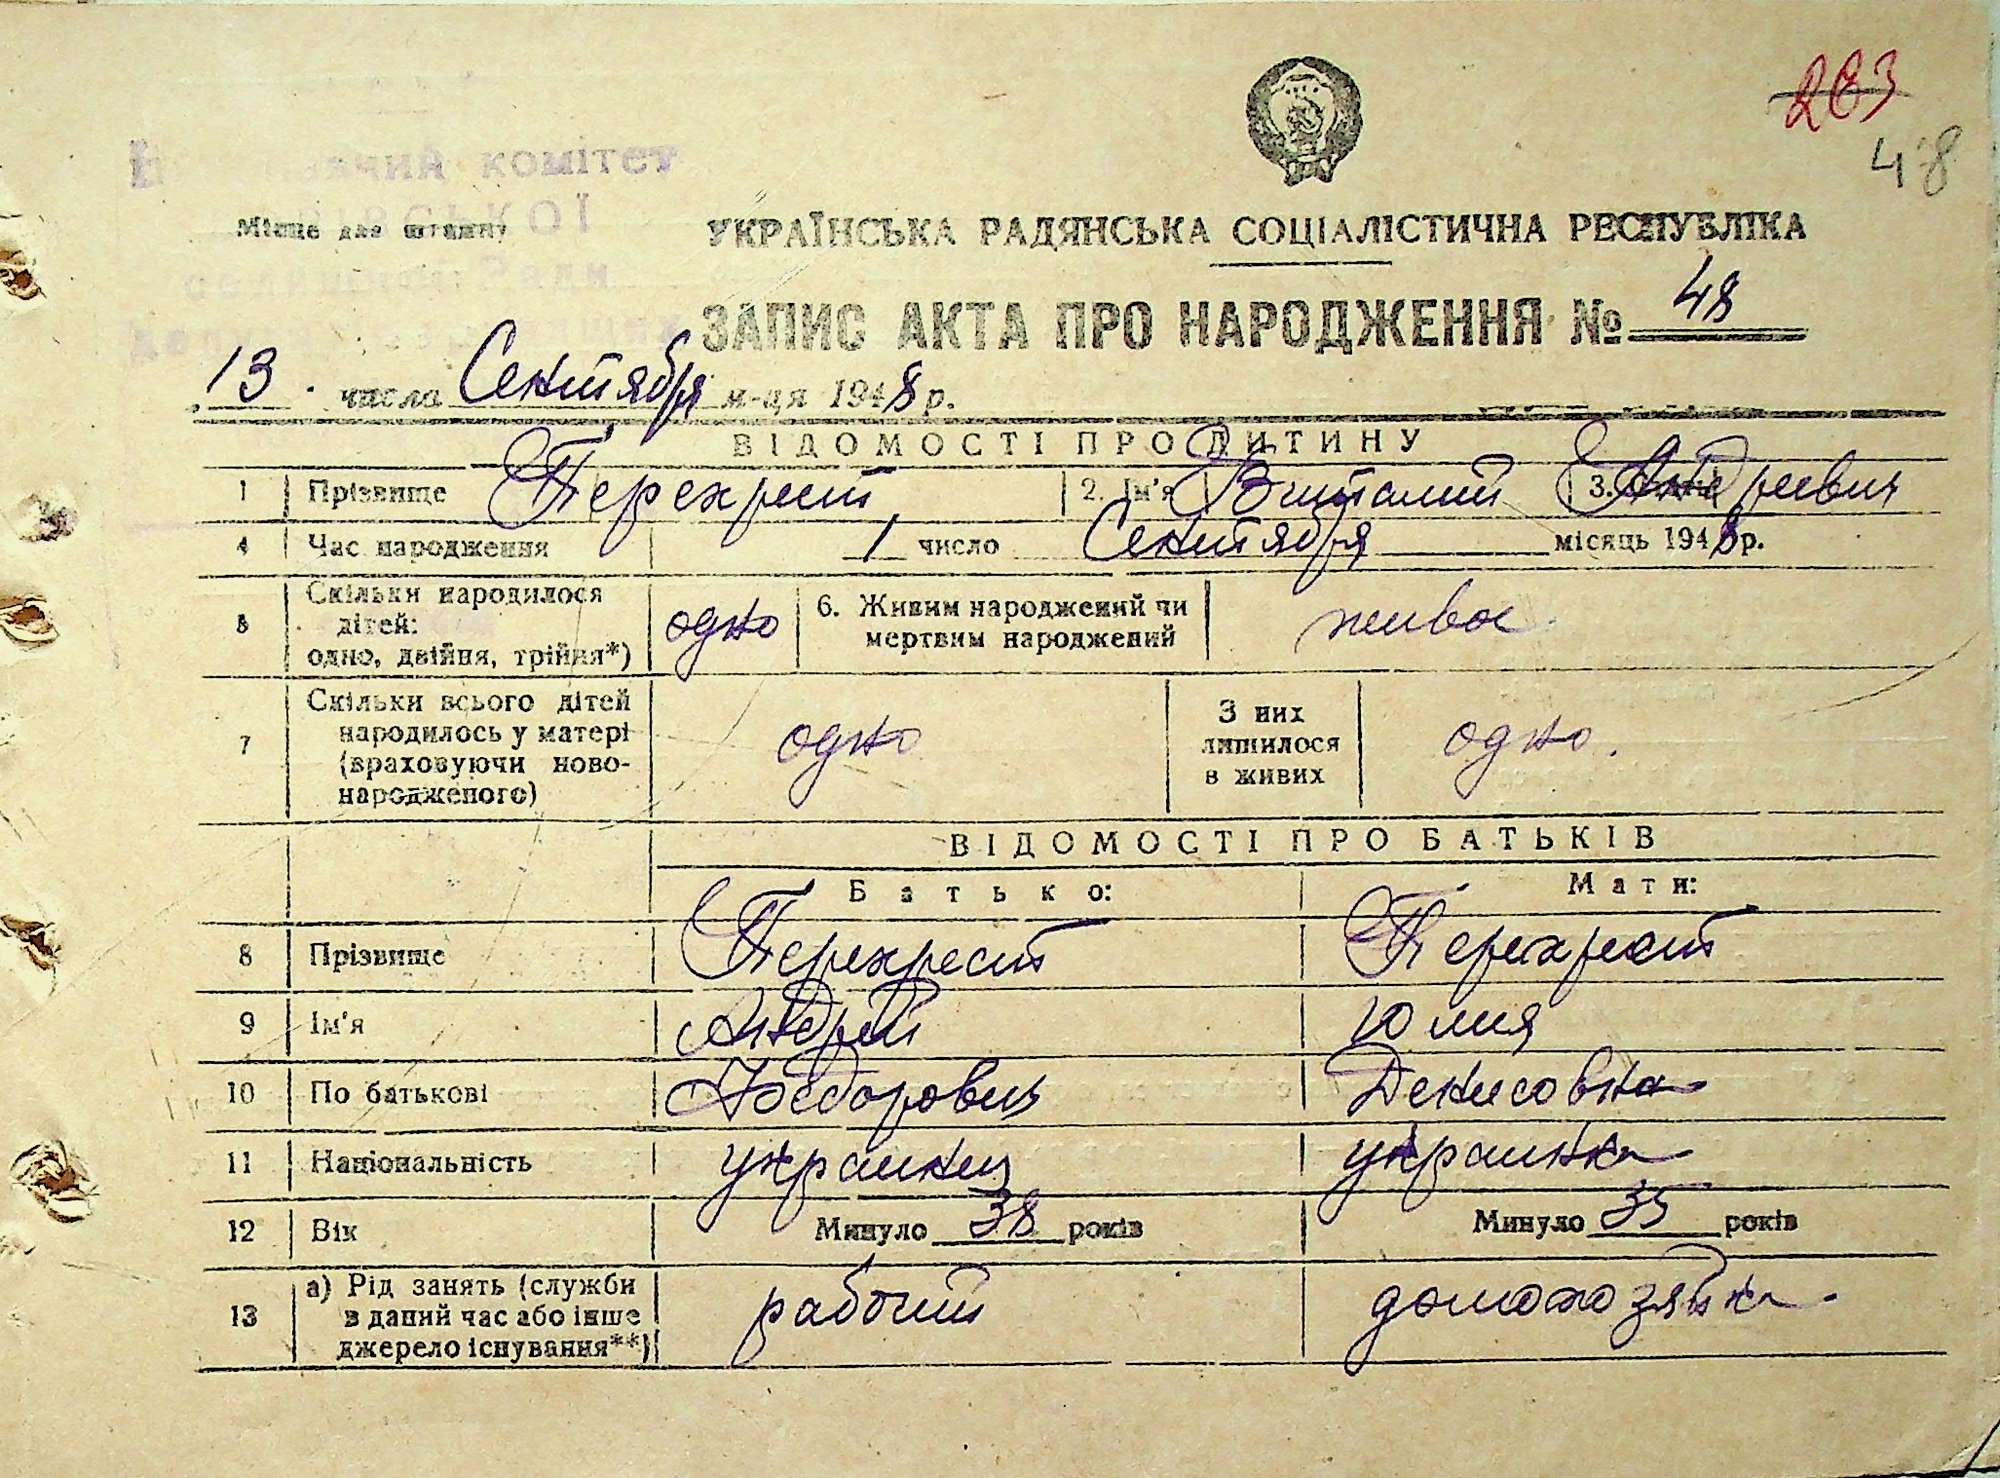 283
48
комітет
Місце для штампу
УКРАЇНСЬКА РАДЯНСЬКА СОЦІАЛІСТИЧНА РЕСПУБЛІКА
ЗАПИС АКТА ПРО НАРОДЖЕННЯ № 48
13 числа Сентября м-ця 1948 р.
ВІДОМОСТІ ПРО ДИТИНУ
1 Прізвище Перехрест 2. Ім'я Виталий 3. Андреевич
4 Час народження 1 число Сентября місяць 1948 р.
5 Скільки народилося дітей: одно, двійня, трійня*) одно 6. Живим народжений чи мертвим народжений живое
7 Скільки всього дітей народилось у матері (враховуючи ново-народженого) одно З них лишилося в живих одно.
ВІДОМОСТІ ПРО БАТЬКІВ
Батько: Мати:
8 Прізвище Перехрест Перехрест
9 Ім'я Андрей Юлия
10 По батькові Федорович Денисовна
11 Національність украинец украинка
12 Вік Минуло 38 років Минуло 35 років
13 а) Рід занять (служби в даний час або інше джерело існування**) рабочий домохозяйка.